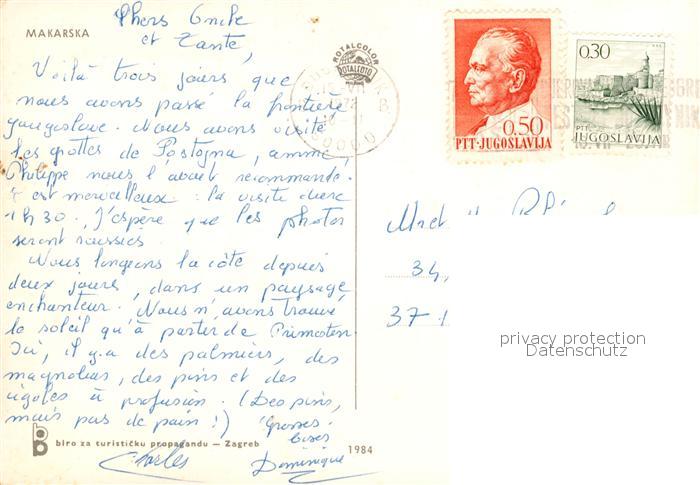 MAKARSKA
et Tante,
Voilà trois jours que
nous avons passé la frontière
yougoslave. Nous avons visité
les grottes de Postogna, comme
Philippe nous l'avait recommandé.
C'est merveilleux : la visite dure
1h30. J'espère que les photos
seront réussies.
Nous longeons la côte depuis
deux jours, dans un paysage
enchanteur. Nous n'avons trouvé
le soleil qu'à partir de Primosten
Ici, il y a des palmiers, des
magnolias, des pins et des
à profusion. (Des pins,
mais pas de pain!) Grosses
bises
Charles Dominique
biro za turističku propagandu — Zagreb
1984
ROTALCOLOR
ROTALFOTO
0.50
PTT-JUGOSLAVIJA
0.30
PTT
JUGOSLAVIJA
34,
37
privacy protection
Datenschutz